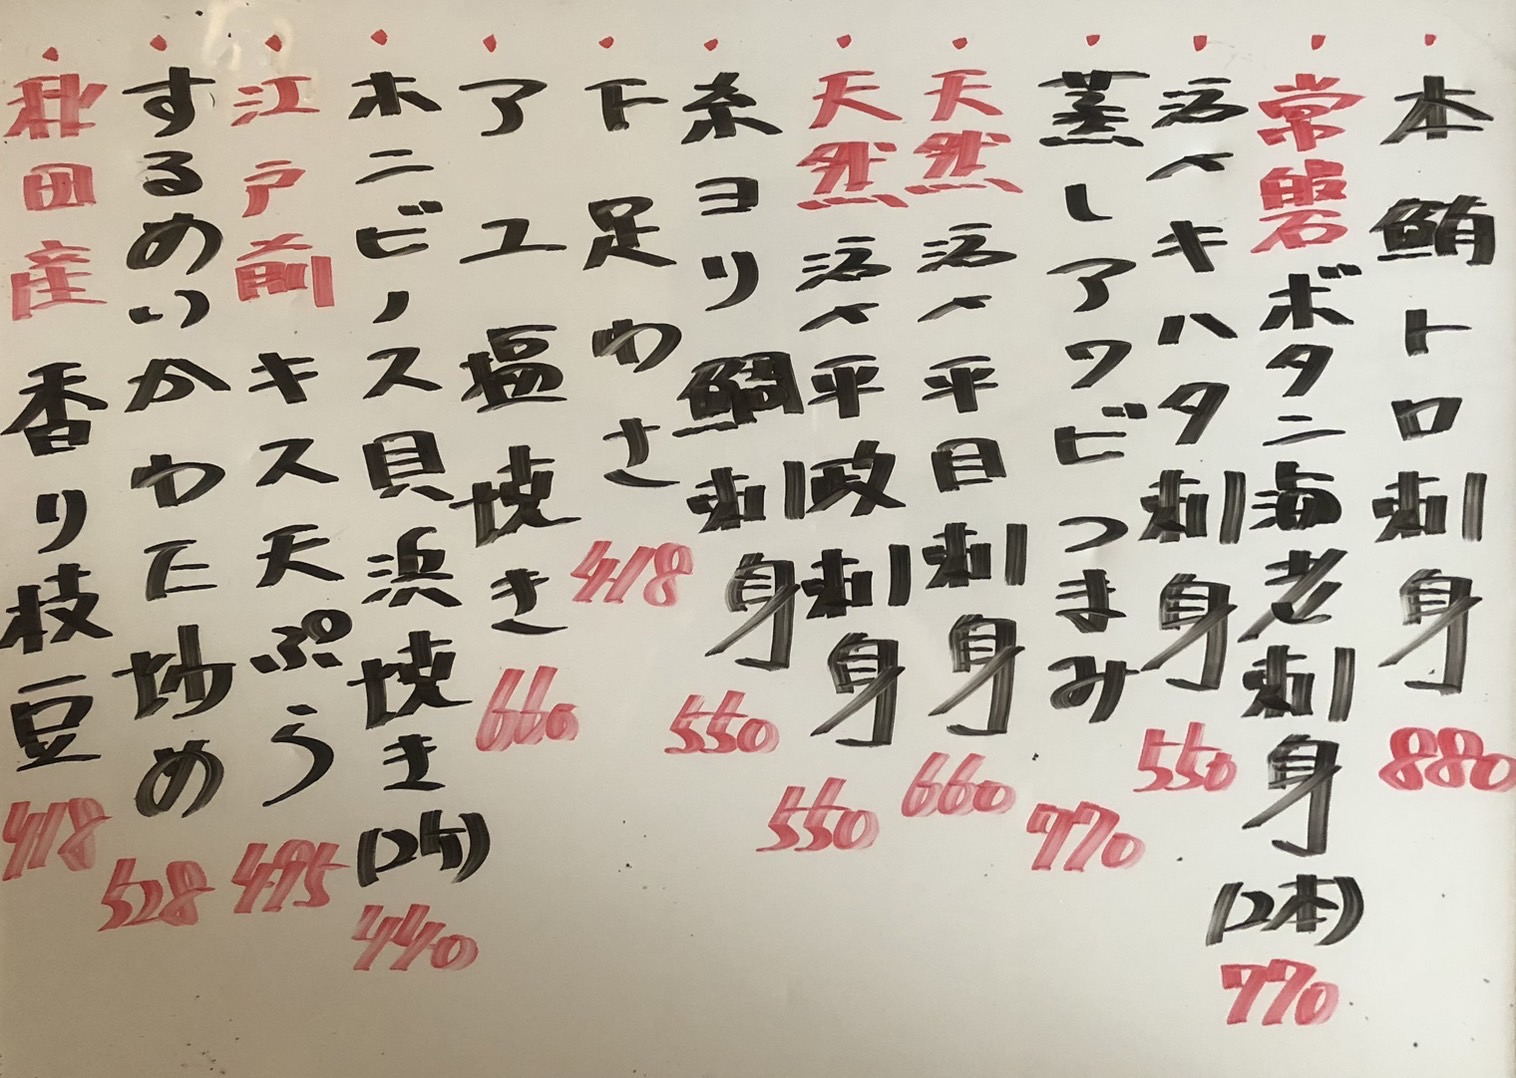 本鮪トロ刺身 880
常磐ボタニ海老刺身(2本) 770
活〆キハタ刺身 550
蒸しアワビつまみ 770
天然活〆平目刺身 660
天然活〆平政刺身 550
糸ヨリ鯛刺身 550
下足わさ 418
アユ塩焼き 660
ホンビノス貝浜焼き(2ケ) 440
江戸前キス天ぷら 495
するめいかわた炒め 528
秋田産香り枝豆 418